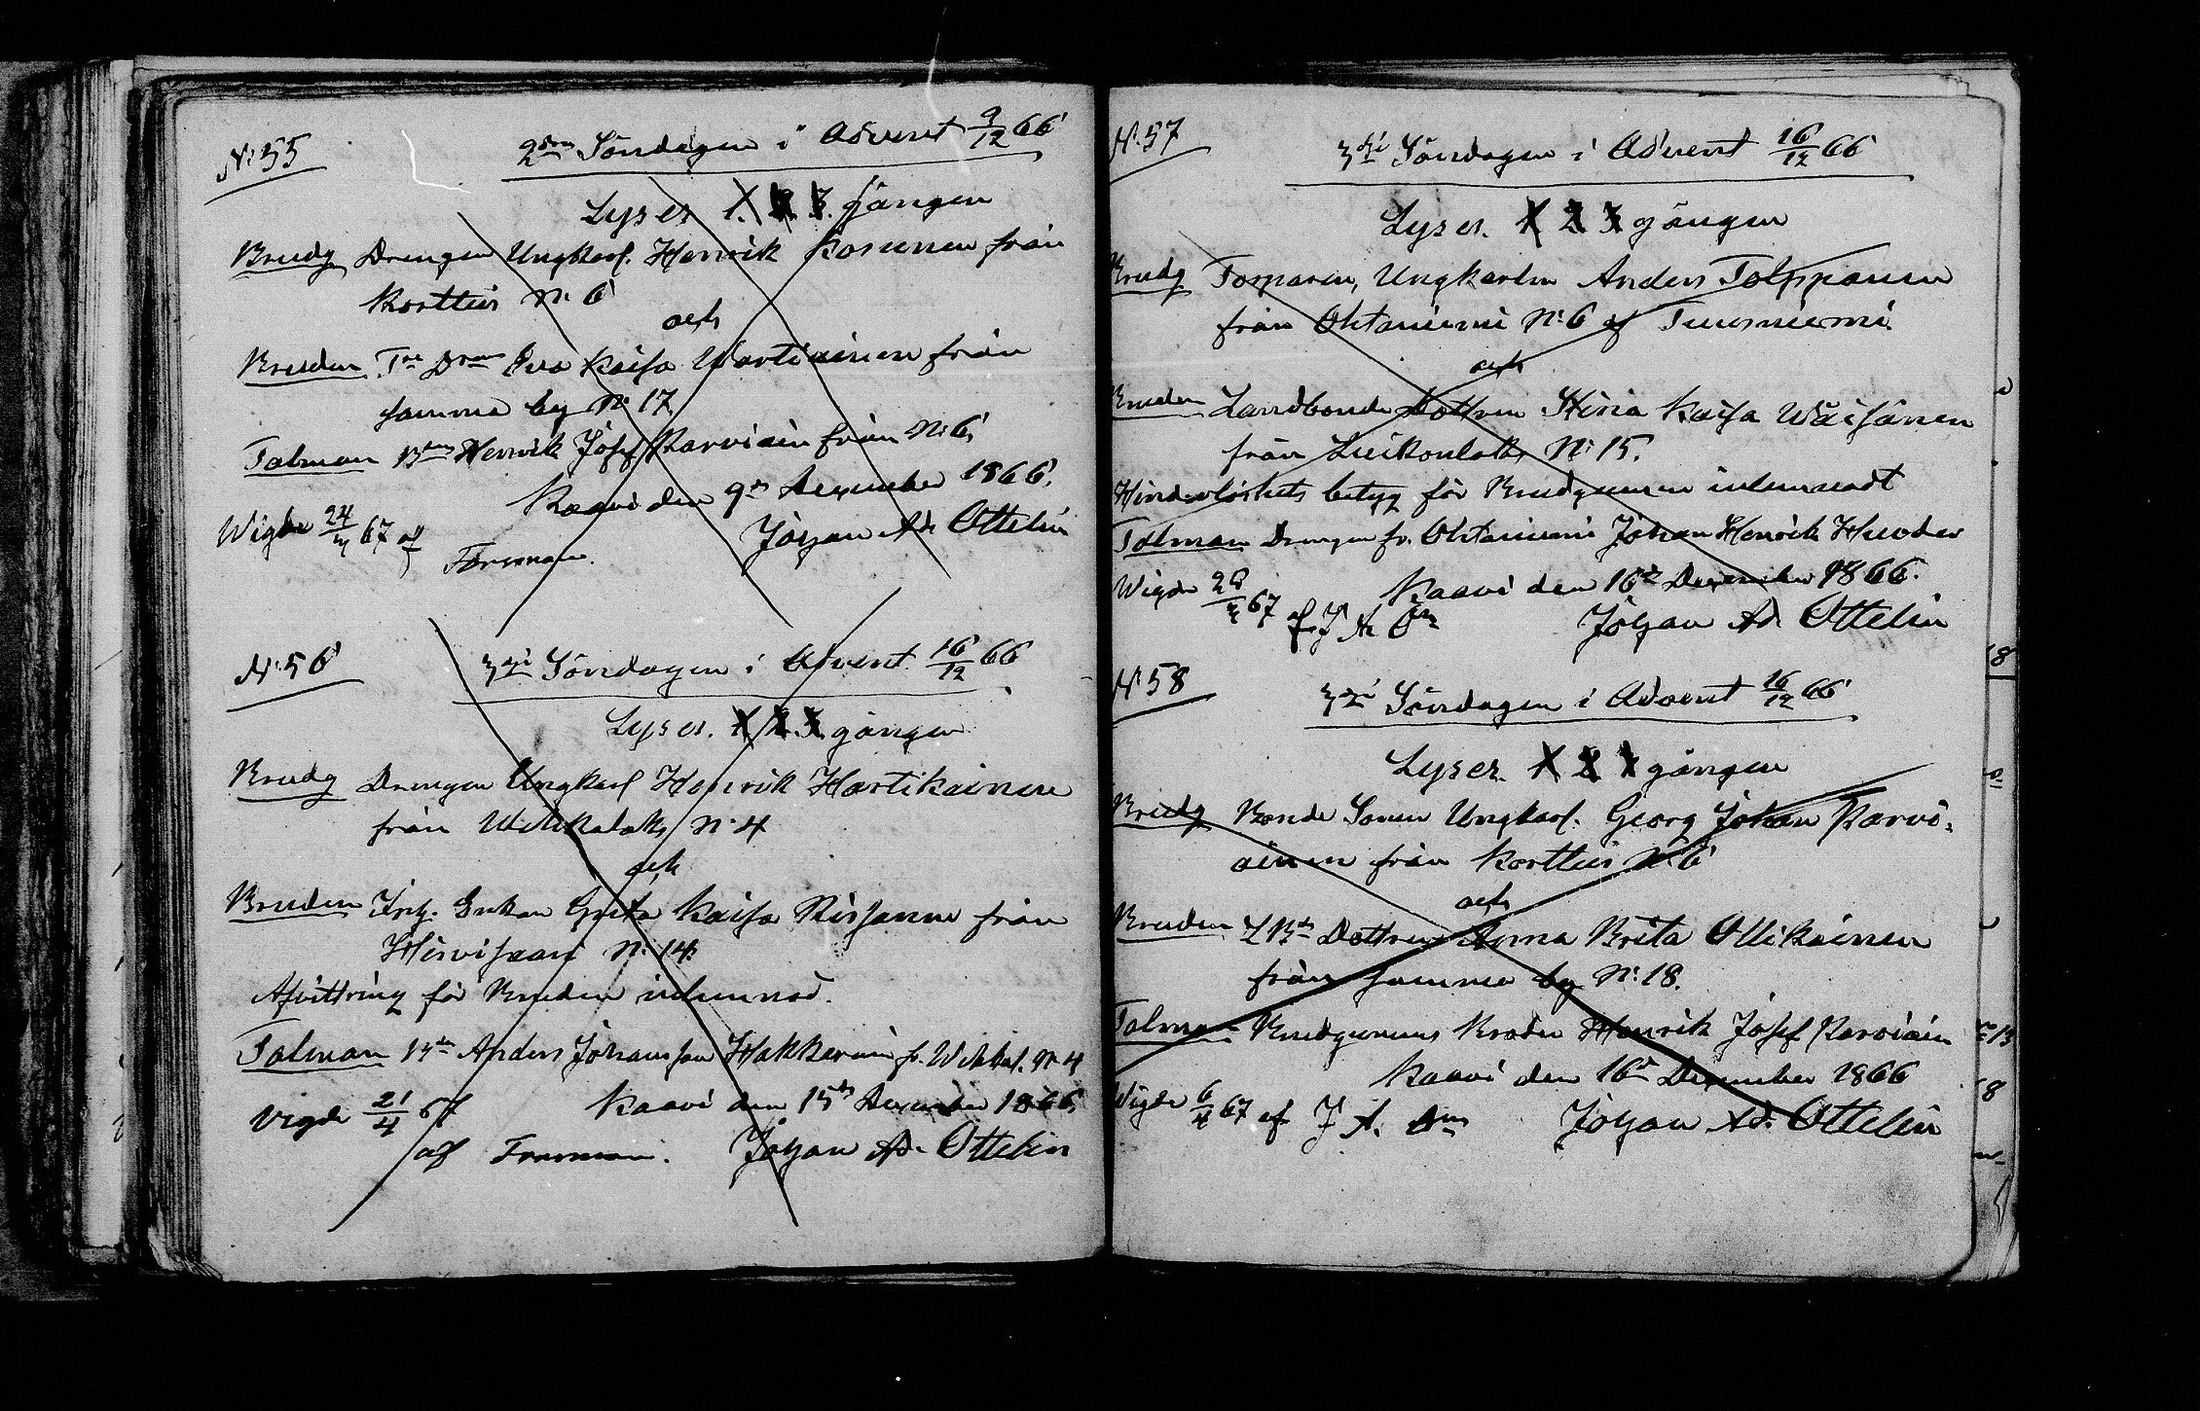 N:55
2dra Söndagen i Advent 9/12 66
Lyser 1. 2. 3. gången
Brudg Drengen Ungkarl. Henrik Kosunen från
Korttus N: 6
och
Bruden Eva Kaisa Wartiainen från
samma by N: 17
Talman Henrik Josef Parviain från N: 6
Kaavi den 9de December 1866.
Wigde 24/3 67 af
Forsman. Johan Ad. Ottelin
N:56
3dje Söndagen i Advent 16/12 66
Lyser. 1. 2. 3. gången
Brudg Drengen Ungkarl Henrik Hartikainen
från Wehkalaks N: 4
och
Bruden Enkan Greta Kaisa från
Hirvisaari N: 14.
Afvittring för Bruden inlemnad.
Talman Anders Johansson Hakkarain fr. Wehkal. N: 4
Vigde 21/4 67 Kaavi den 15de December 1866.
af Forsman. Johan Ad. Ottelin
N:57
3dje Söndagen i Advent 16/12 66
Lyser. 1 2 3 gången
Brudg Torparen, Ungkarlen Anders Tolppanen
från Ohtaniemi N: 6 af Tuusniemi
och
Bruden Landbonde Dottren Stina Kaisa Wäisänen
från Luikonlaks N: 15.
Hinderlöshets betyg för Brudgummen inlemnadt
Talman Drengen fr. Ohtaniemi Johan Henrik
Wigde 67 Kaavi den 16de December 1866.
af J A Johan Ad. Ottelin
N:58
3dje Söndagen i Advent 16/12 66
Lyser. 1 2 3 gången
Brudg Bonde Sonen Ungkarl. Georg Johan Parvi-
ainen från Korttus N: 6
och
Bruden Dottren Anna Brita Ollikainen
från samma by N: 18.
Talman Brudgummens Broder Henrik Josef Parviain
Kaavi den 16de December 1866
Wigde 6/4 67 af J A. Johan Ad. Ottelin